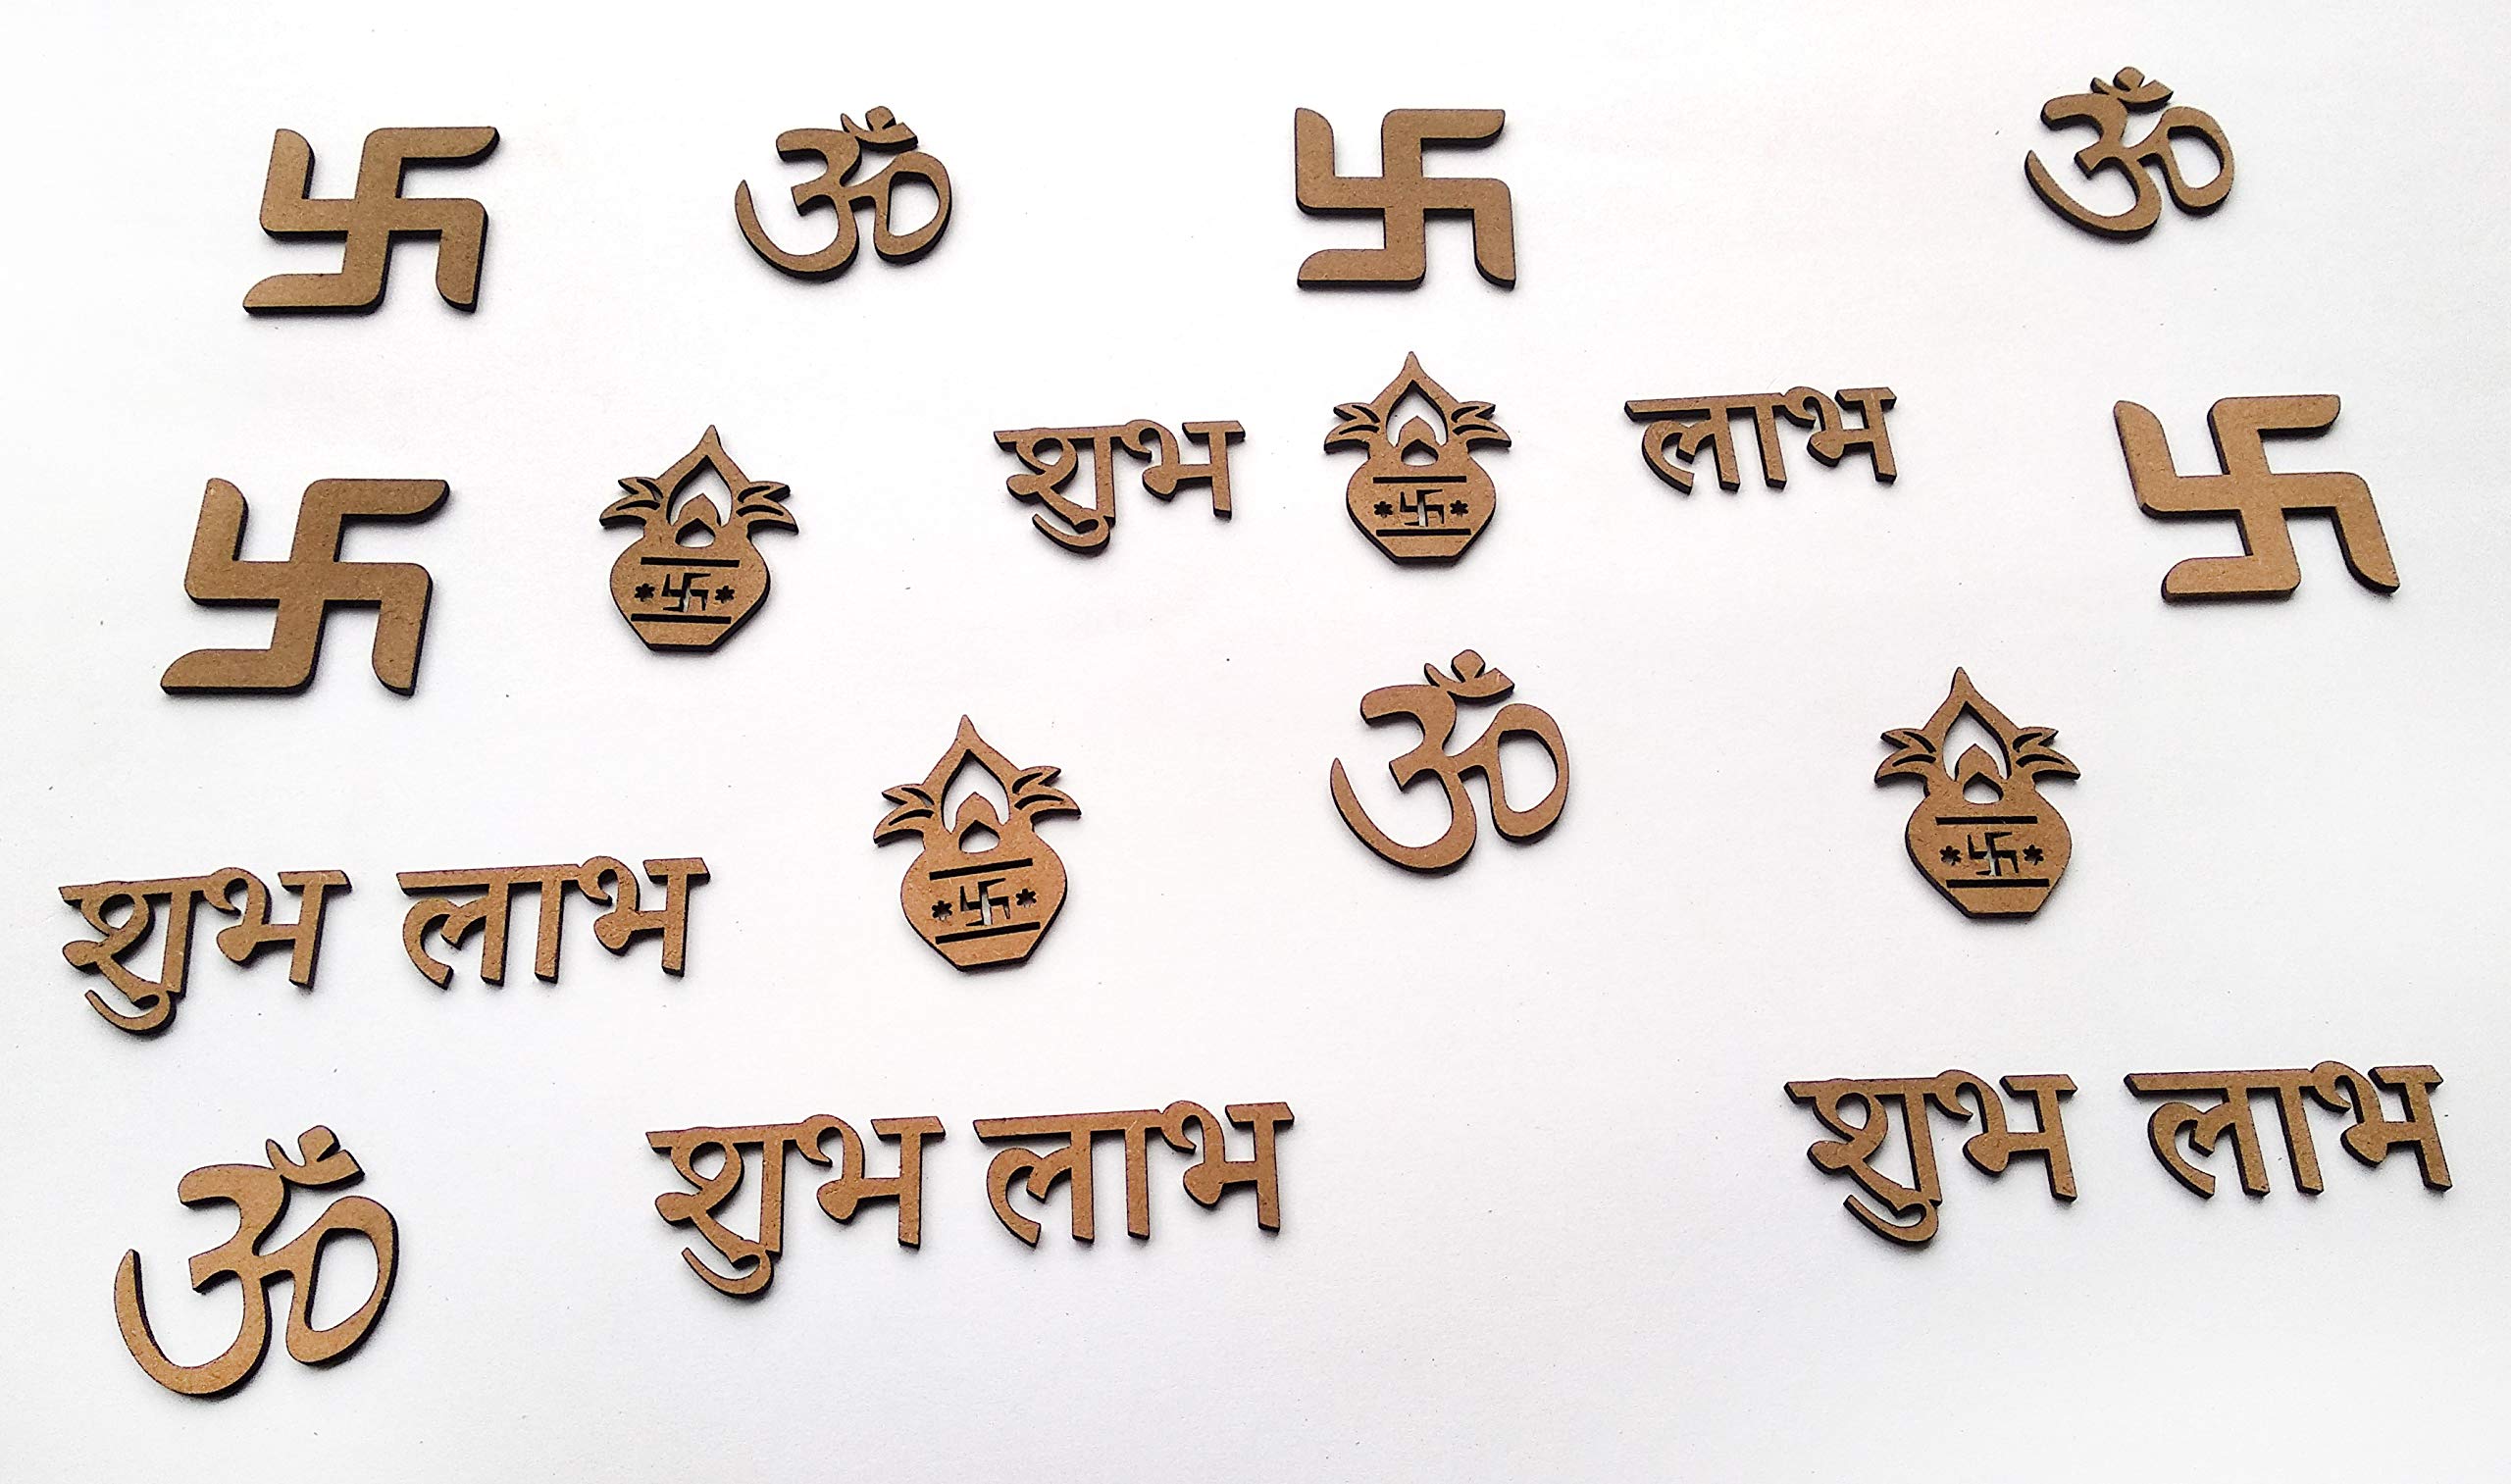 ॐ ॐ
शुभ लाभ
ॐ
शुभ लाभ
ॐ
शुभ लाभ शुभ लाभ